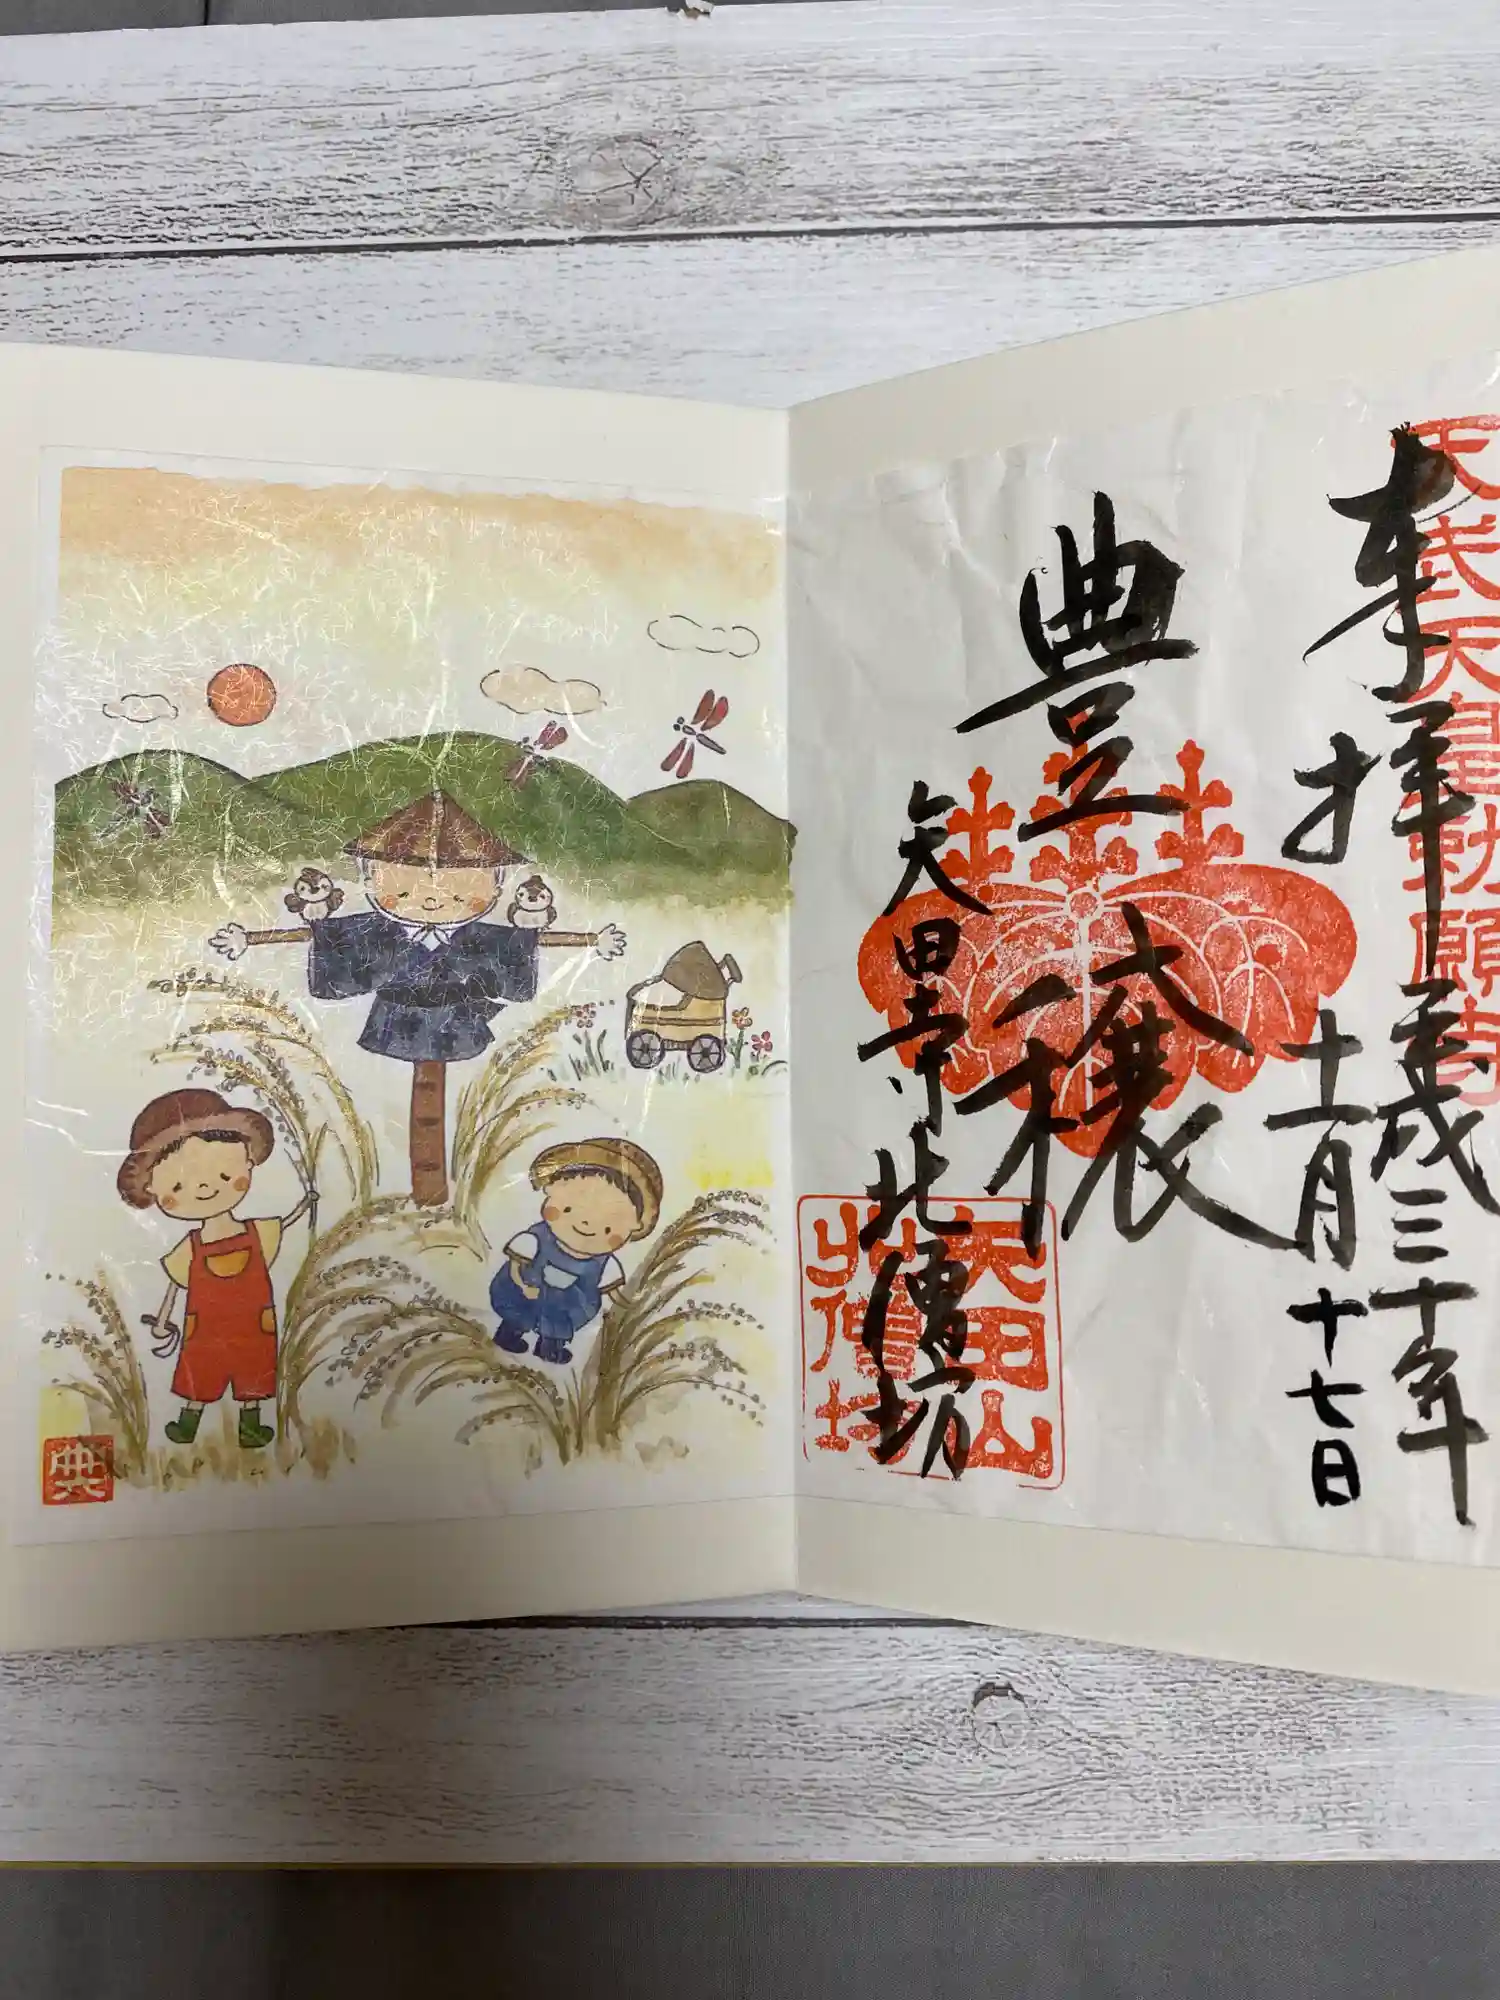 天武天皇勅願寺
奉拝
平成三十年
十一月十七日
豊穣
矢田寺北僧坊
矢田山
北僧坊
典